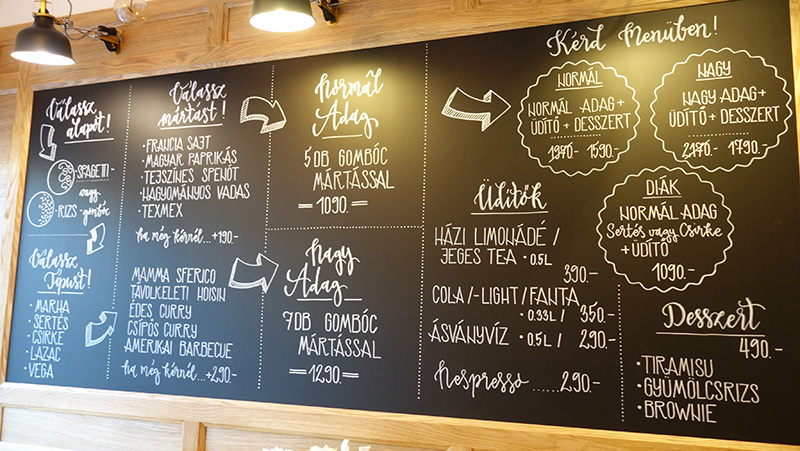 Válassz
alapot!
• SPAGETTI -
vagy
• RIZS - gombóc
Válassz
Típust!
• MARHA
• SERTÉS
• CSIRKE
• LAZAC
• VEGA
Válassz
mártást!
• FRANCIA SAJT
• MAGYAR PAPRIKÁS
• TEJSZÍNES SPENÓT
• HAGYOMÁNYOS VADAS
• TEXMEX
ha még kérnél...+190.-
MAMMA SFERICO
TÁVOLKELETI HOISIN
ÉDES CURRY
CSÍPŐS CURRY
AMERIKAI BARBECUE
ha még kérnél...+290.-
Normál
Adag
5DB GOMBÓC
MÁRTÁSSAL
1090.-
Nagy
Adag
7DB GOMBÓC
MÁRTÁSSAL
1290.-
Kérd Menüben!
NORMÁL
NORMÁL ADAG+
ÜDÍTŐ + DESSZERT
1970.- 1590.-
NAGY
NAGY ADAG+
ÜDÍTŐ + DESSZERT
2170.- 1790.-
DIÁK
NORMÁL ADAG
Sertés vagy Csirke
+ ÜDÍTŐ
1090.-
Üdítők
HÁZI LIMONÁDÉ /
JEGES TEA • 0.5L
390.-
COLA/-LIGHT/FANTA
• 0.33L / 350.-
ÁSVÁNYVÍZ • 0.5L / 290.-
Nespresso ......290.-
Desszert
490.-
• TIRAMISU
• GYÜMÖLCSRIZS
• BROWNIE